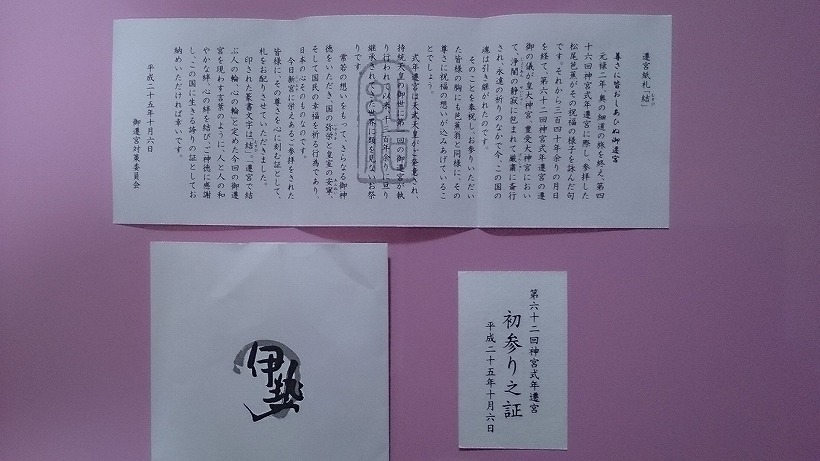 遷宮紙札「結」
尊さに皆おしあひぬ御遷宮
元禄二年、奥の細道の旅を終え、第四
十六回神宮式年遷宮に際し、参拝した
松尾芭蕉がその祝福の様子を詠んだ句
です。それから三百二十余りの月日
を経て、第六十二回神宮式年遷宮の遷
御の儀が皇大神宮、豊受大神宮におい
て、浄闇の静寂に包まれて厳粛に斎行
され、永遠の祈りのなかで今、この国の
魂は引き継がれたのです。
そのことを奉祝し、お参りいただい
た皆様の胸にも芭蕉翁と同様に、その
尊さに祝福の想いが込みあげているこ
とでしょう。
式年遷宮は天武天皇がご発意され、
持統天皇の御世に第一回の御遷宮が執
り行われて以来、千三百年余りに亘り
継承されてきた世界に類を見ないお祭
りです。
常若の想いをもって、さらなる御神
徳をいただき、国の弥栄と皇室の安寧、
そして国民の幸福を祈る行為であり、
日本の心そのものなのです。
今日新宮に栄えあるご参拝をされた
皆様に、その尊さを心に刻む証として、
札をお配りさせていただきました。
印された篆書文字は「結」。遷宮で結
ぶ人の輪、心の輪と定めた今回の御遷
宮を現わす言葉のように、人と人の和
やかな絆、心の絆を結び、ご神徳に感謝
し、この国に生きる誇りの証としてお
納めいただければ幸いです。
平成二十五年十月六日
御遷宮対策委員会
伊勢
第六十二回神宮式年遷宮
初参り之証
平成二十五年十月六日